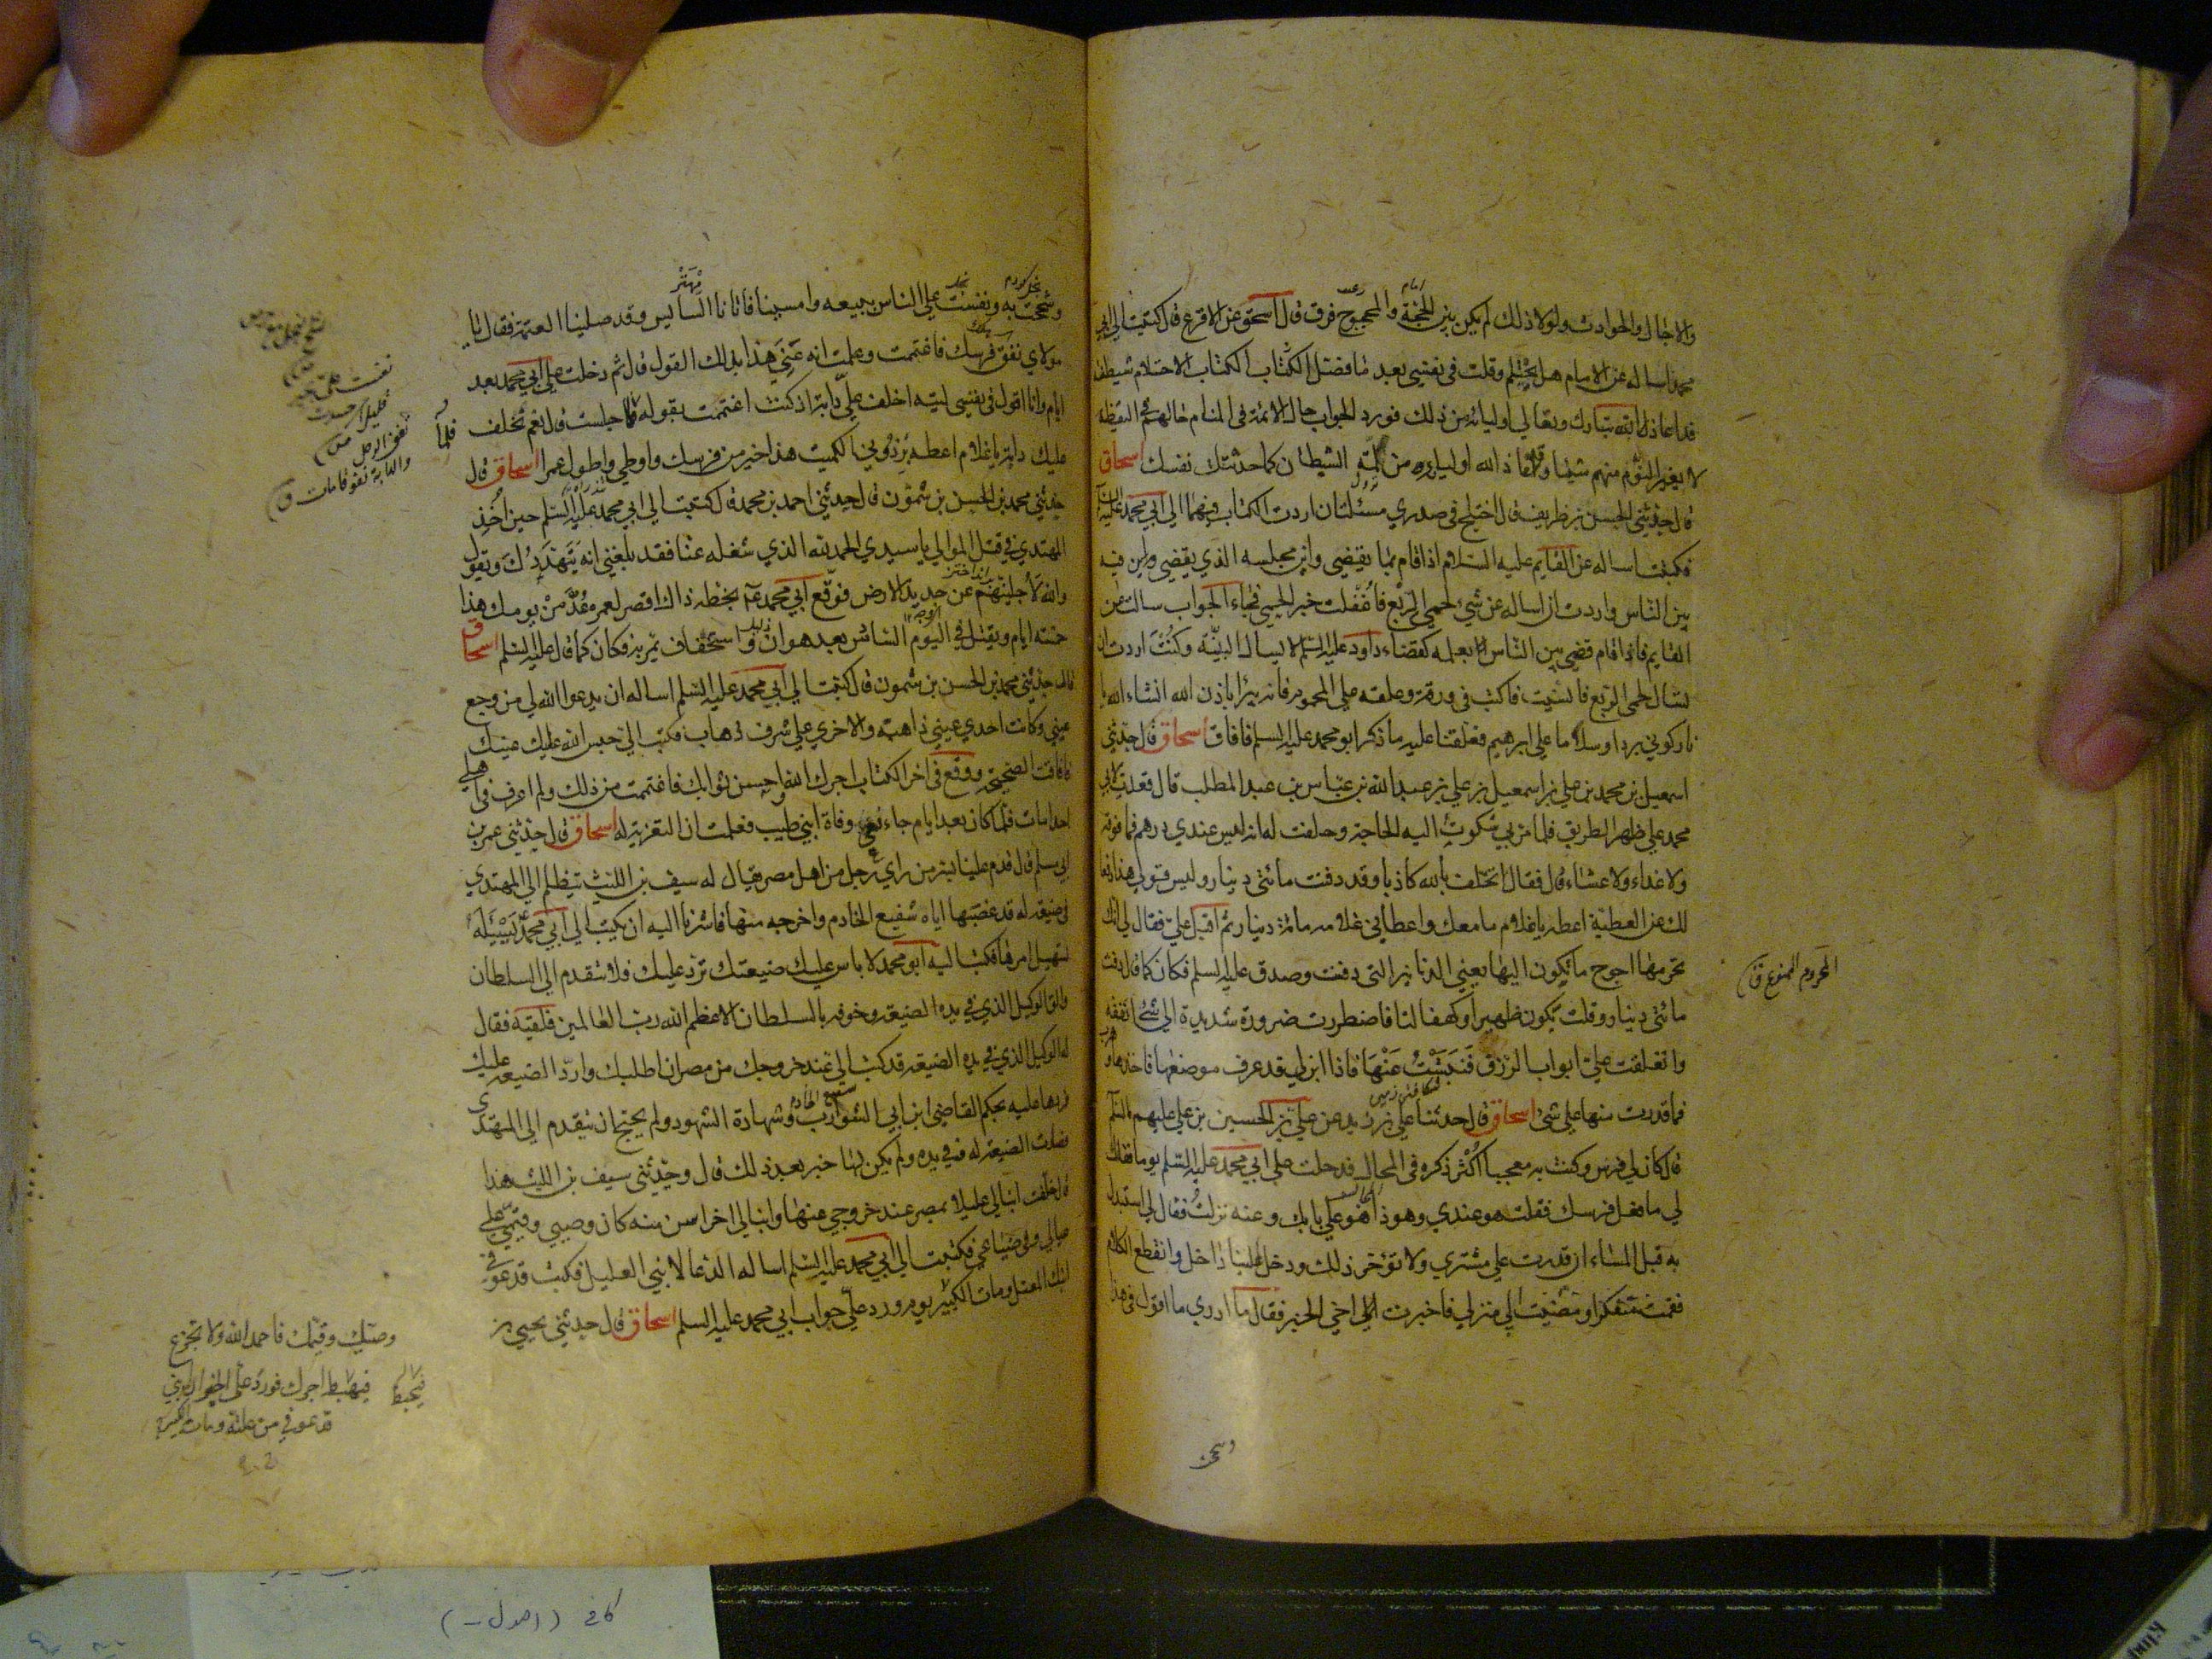 والاجال والحوادث ولولا ذلك لم يكن بين الحجة والمحجوج فرق قال اسحق عن الاقرع قال كتبت الى ابي
محمد اساله عن الامام هل يحتلم وقلت في نفسي بعد ما فصل الكتاب الكتاب الاحتلام شيطنة
قد اعاذ الله تبارك وتعالى اوليائه من ذلك فورد الجواب حال الائمة في المنام حالهم في اليقظة
لا يغير النوم منهم شيئا وقد اعاذ الله اوليائه من لمة الشيطان كما حدثتك نفسك اسحاق
قال حدثني الحسن بن ظريف قال اختلج في صدري مسئلتان اردت الكتاب فيهما الى ابي محمد عليه السلام
فكتبت اساله عن القايم عليه السلام اذا قام بما يقضي واين مجلسه الذي يقضي فيه
بين الناس واردت ان اساله عن شئ لحمى الربع فاغفلت خبر الحمى فجاء الجواب سالت عن
القايم فاذا قام قضى بين الناس بعلمه كقضاء داود عليه السلم لا يسال البينة وكنت اردت ان
تسال لحمى الربع فانسيت فاكتب في ورقة وعلقه على المحموم فانه يبرا باذن الله انشاء الله يا
نار كوني بردا وسلاما على ابرهيم فعلقنا عليه ما ذكر ابو محمد عليه السلم فافاق اسحاق قال حدثني
اسمعيل بن محمد بن علي بن اسمعيل بن علي بن عبد الله بن عباس بن عبد المطلب قال قعدت لابي
محمد على ظهر الطريق فلما مر بي شكوت اليه الحاجة وحلفت له انه ليس عندي درهم فما فوقه
ولا غداء ولا عشاء قال فقال تحلف بالله كاذبا وقد دفنت مائتي دينار وليس قولي هذا دفعا
لك عن العطية اعطه يا غلام ما معك فاعطاني غلامه مائة دينار ثم اقبل علي فقال لي انك
تحرمها احوج ما يكون اليها يعني الدنانير التي دفنت وصدق عليه السلم فكان كما قال دفنت
مائتي دينار وقلت يكون ظهيرا وكهفا لنا فاضطررت ضرورة شديدة الى شئ انفقه
وانغلقت علي ابواب الرزق فنبشت عنها فاذا ابن لي قد عرف موضعها فاخذها وهرب
فما قدرت منها على شئ اسحاق قال حدثنا علي بن زيد عن علي بن الحسين بن علي عليهم السلم
قال كان لي فرس وكنت به معجبا اكثر ذكره في المحال فدخلت على ابي محمد عليه السلم يوما فقال
لي ما فعل فرسك فقلت هو عندي وهو ذا هو على بابك وعنه نزلت فقال لي استبدل
به قبل المساء ان قدرت على مشتري ولا تؤخر ذلك ودخل علينا داخل وانقطع الكلام
فقمت متفكرا ومضيت الى منزلي فاخبرت اخي الخبر فقال ما ادري ما اقول في هذا
المحروم الممنوع ق
وشححت به ونفست على الناس ببيعه وامسينا فاتانا السايس وقد صلينا العتمة فقال يا
مولاي نفق فرسك فاغتممت وعلمت انه عنى هذا بذلك القول قال ثم دخلت على ابي محمد بعد
ايام وانا اقول في نفسي ليته اخلف علي دابة اذ كنت اغتممت بقوله فلما جلست قال نعم نخلف
عليك دابة يا غلام اعطه برذوني الكميت هذا خير من فرسك واوطى واطول عمرا اسحاق قال
حدثني محمد بن الحسن بن شمون قال حدثني احمد بن محمد قال كتبت الى ابي محمد عليه السلم حين اخذ
المهتدي في قتل الموالي يا سيدي الحمد لله الذي شغله عنا فقد بلغني انه يتهددك ويقول
والله لاجلينهم عن جديد الارض فوقع ابي محمد عم بخطه ذاك اقصر لعمره عد من يومك هذا
خمسة ايام ويقتل في اليوم السادس بعد هوان واستخفاف يمر به فكان كما قال عليه السلم اسحاق
قال حدثني محمد بن الحسن بن شمون قال كتبت الى ابي محمد عليه السلم اساله ان يدعو الله لي من وجع
عيني وكانت احدى عيني ذاهبة والاخرى على شرف ذهاب فكتب الي حبس الله عليك عينك
فافاقت الصحيحة ووقع في اخر الكتاب اجرك الله واحسن ثوابك فاغتممت من ذلك ولم اعرف في اهلي
احدا مات فلما كان بعد ايام جاءني وفاة ابني طيب فعلمت ان التعزية له اسحاق قال حدثني عمر بن
ابي مسلم قال قدم علينا بسر من راى رجل من اهل مصر يقال له سيف بن الليث يتظلم الى المهتدي
في ضيعة له قد غصبها اياه شفيع الخادم واخرجه منها فاشرنا اليه ان يكتب الى ابي محمد يسئله
تسهيل امرها فكتب اليه ابو محمد لا باس عليك ضيعتك ترد عليك فلا تتقدم الى السلطان
والق الوكيل الذي في يده الضيعة وخوفه بالسلطان الاعظم الله رب العالمين فلقيه فقال
له الوكيل الذي في يده الضيعة قد كتب الي عند خروجك من مصر ان اطلبك وارد الضيعة عليك
فردها عليه بحكم القاضي ابن ابي الشوارب وشهادة الشهود ولم يحتج ان يتقدم الى المهتدي
فصارت الضيعة له وفي يده ولم يكن لها خبر بعد ذلك قال وحدثني سيف بن الليث هذا
قال خلفت ابنا لي عليلا بمصر عند خروجي عنها وابنا لي اخر اسن منه كان وصيي وقيمي على
عيالي وفي ضياعي فكتبت الى ابي محمد عليه السلم اساله الدعا لابني العليل فكتب قد عوفي
ابنك المعتل ومات الكبير يوم ورد علي جواب ابي محمد عليه السلم اسحاق قال حدثني يحيى بن
نفق الرجل
والدابة نفوقا مات ق
فلما
وصيك وقيمك فاحمد الله ولا تجزع
فيحبط اجرك فورد علي الخبر ان ابني
قد عوفي من علته ومات الكبير
كافي (اصول -)